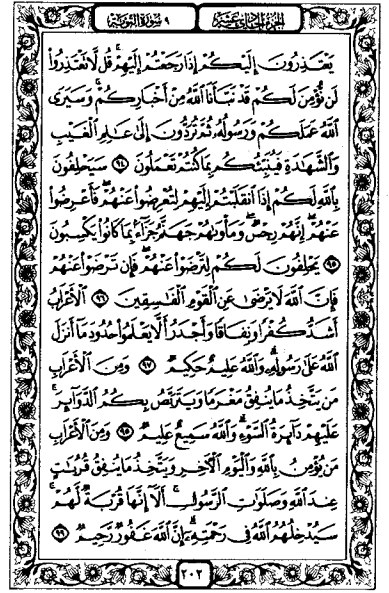 الجزء الحادي عشر ٩ سورة التوبة
يَعْتَذِرُونَ إِلَيْكُمْ إِذَا رَجَعْتُمْ إِلَيْهِمْ قُل لَّا تَعْتَذِرُوا۟
لَن نُّؤْمِنَ لَكُمْ قَدْ نَبَّأَنَا ٱللَّهُ مِنْ أَخْبَارِكُمْ وَسَيَرَى
ٱللَّهُ عَمَلَكُمْ وَرَسُولُهُۥ ثُمَّ تُرَدُّونَ إِلَىٰ عَٰلِمِ ٱلْغَيْبِ
وَٱلشَّهَٰدَةِ فَيُنَبِّئُكُم بِمَا كُنتُمْ تَعْمَلُونَ ٩٤ سَيَحْلِفُونَ
بِٱللَّهِ لَكُمْ إِذَا ٱنقَلَبْتُمْ إِلَيْهِمْ لِتُعْرِضُوا۟ عَنْهُمْ فَأَعْرِضُوا۟
عَنْهُمْ إِنَّهُمْ رِجْسٌ وَمَأْوَىٰهُمْ جَهَنَّمُ جَزَآءًۢ بِمَا كَانُوا۟ يَكْسِبُونَ
٩٥ يَحْلِفُونَ لَكُمْ لِتَرْضَوْا۟ عَنْهُمْ فَإِن تَرْضَوْا۟ عَنْهُمْ
فَإِنَّ ٱللَّهَ لَا يَرْضَىٰ عَنِ ٱلْقَوْمِ ٱلْفَٰسِقِينَ ٩٦ ٱلْأَعْرَابُ
أَشَدُّ كُفْرًا وَنِفَاقًا وَأَجْدَرُ أَلَّا يَعْلَمُوا۟ حُدُودَ مَآ أَنزَلَ
ٱللَّهُ عَلَىٰ رَسُولِهِۦ وَٱللَّهُ عَلِيمٌ حَكِيمٌ ٩٧ وَمِنَ ٱلْأَعْرَابِ
مَن يَتَّخِذُ مَا يُنفِقُ مَغْرَمًا وَيَتَرَبَّصُ بِكُمُ ٱلدَّوَآئِرَ
عَلَيْهِمْ دَآئِرَةُ ٱلسَّوْءِ وَٱللَّهُ سَمِيعٌ عَلِيمٌ ٩٨ وَمِنَ ٱلْأَعْرَابِ
مَن يُؤْمِنُ بِٱللَّهِ وَٱلْيَوْمِ ٱلْـَٔاخِرِ وَيَتَّخِذُ مَا يُنفِقُ قُرُبَٰتٍ
عِندَ ٱللَّهِ وَصَلَوَٰتِ ٱلرَّسُولِ أَلَآ إِنَّهَا قُرْبَةٌ لَّهُمْ
سَيُدْخِلُهُمُ ٱللَّهُ فِى رَحْمَتِهِۦٓ إِنَّ ٱللَّهَ غَفُورٌ رَّحِيمٌ ٩٩
٢٠٢